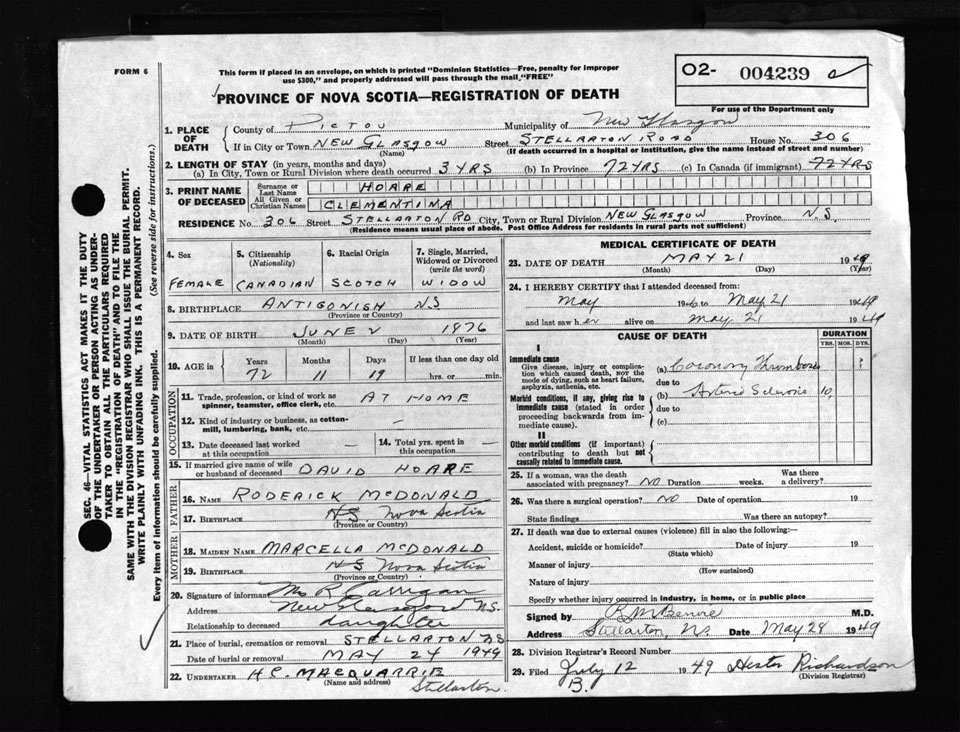 FORM 6
This form if placed in an envelope, on which is printed "Dominion Statistics—Free, penalty for improper
use $300," and properly addressed will pass through the mail, "FREE"
O2- 004239
For use of the Department only
PROVINCE OF NOVA SCOTIA—REGISTRATION OF DEATH
1. PLACE OF DEATH
County of PICTOU Municipality of New Glasgow
If in City or Town NEW GLASGOW Street STELLARTON ROAD House No. 306
(Name) (If death occurred in a hospital or institution, give the name instead of street and number)
2. LENGTH OF STAY (in years, months and days)
(a) In City, Town or Rural Division where death occurred 3 YRS (b) In Province 72 YRS (c) In Canada (if immigrant) 72 YRS
3. PRINT NAME OF DECEASED
Surname or Last Name HOARE
All Given or Christian Names CLEMENTINA
RESIDENCE No. 306 Street STELLARTON RD City, Town or Rural Division NEW GLASGOW Province N.S.
(Residence means usual place of abode. Post Office Address for residents in rural parts not sufficient)
4. Sex 5. Citizenship (Nationality) 6. Racial Origin 7. Single, Married, Widowed or Divorced (write the word)
FEMALE CANADIAN SCOTCH WIDOW
8. BIRTHPLACE ANTIGONISH N.S
(Province or Country)
9. DATE OF BIRTH JUNE 2 1876
(Month) (Day) (Year)
10. AGE in Years Months Days If less than one day old
72 11 19 hrs. or min.
OCCUPATION
11. Trade, profession, or kind of work as spinner, teamster, office clerk, etc. AT HOME
12. Kind of industry or business, as cotton-mill, lumbering, bank, etc. —
13. Date deceased last worked at this occupation — 14. Total yrs. spent in this occupation —
15. If married give name of wife or husband of deceased DAVID HOARE
FATHER
16. NAME RODERICK MCDONALD
17. BIRTHPLACE NS Nova Scotia
(Province or Country)
MOTHER
18. MAIDEN NAME MARCELLA MCDONALD
19. BIRTHPLACE NS Nova Scotia
(Province or Country)
20. Signature of informant Mrs R Garrigan
Address New Glasgow N.S.
Relationship to deceased daughter
21. Place of burial, cremation or removal STELLARTON NS
Date of burial or removal MAY 24 1949
22. UNDERTAKER H.C. MACQUARRIE
(Name and address) Stellarton
MEDICAL CERTIFICATE OF DEATH
23. DATE OF DEATH MAY 21 1949
(Month) (Day) (Year)
24. I HEREBY CERTIFY that I attended deceased from:
May 1946 to May 21 1949
and last saw her alive on May 21 1949
CAUSE OF DEATH DURATION
YRS. MOS. DYS.
I
Immediate cause
Give disease, injury or complication which caused death, NOT the mode of dying, such as heart failure, asphyxia, asthenia, etc.
(a) Coronory Thrombosis ?
due to
Morbid conditions, if any, giving rise to immediate cause (stated in order proceeding backwards from immediate cause).
(b) 10
due to
(c)
II
Other morbid conditions (if important) contributing to death but not causally related to immediate cause.
25. If a woman, was the death associated with pregnancy? NO Duration weeks. Was there a delivery?
26. Was there a surgical operation? NO Date of operation 19
State findings Was there an autopsy?
27. If death was due to external causes (violence) fill in also the following:—
Accident, suicide or homicide? Date of injury 19
(State which)
Manner of injury
(How sustained)
Nature of injury
Specify whether injury occurred in industry, in home, or in public place
Signed by M.D.
Address Stellarton, NS Date May 28 1949
28. Division Registrar's Record Number
29. Filed July 12 1949 Hester Richardson
B. (Division Registrar)
SEC. 46—VITAL STATISTICS ACT MAKES IT THE DUTY
OF THE UNDERTAKER OR PERSON ACTING AS UNDER-
TAKER TO OBTAIN ALL THE PARTICULARS REQUIRED
IN THE "REGISTRATION OF DEATH" AND TO FILE THE
SAME WITH THE DIVISION REGISTRAR WHO SHALL ISSUE THE BURIAL PERMIT.
WRITE PLAINLY WITH UNFADING INK. THIS IS A PERMANENT RECORD.
Every item of information should be carefully supplied. (See reverse side for instructions.)